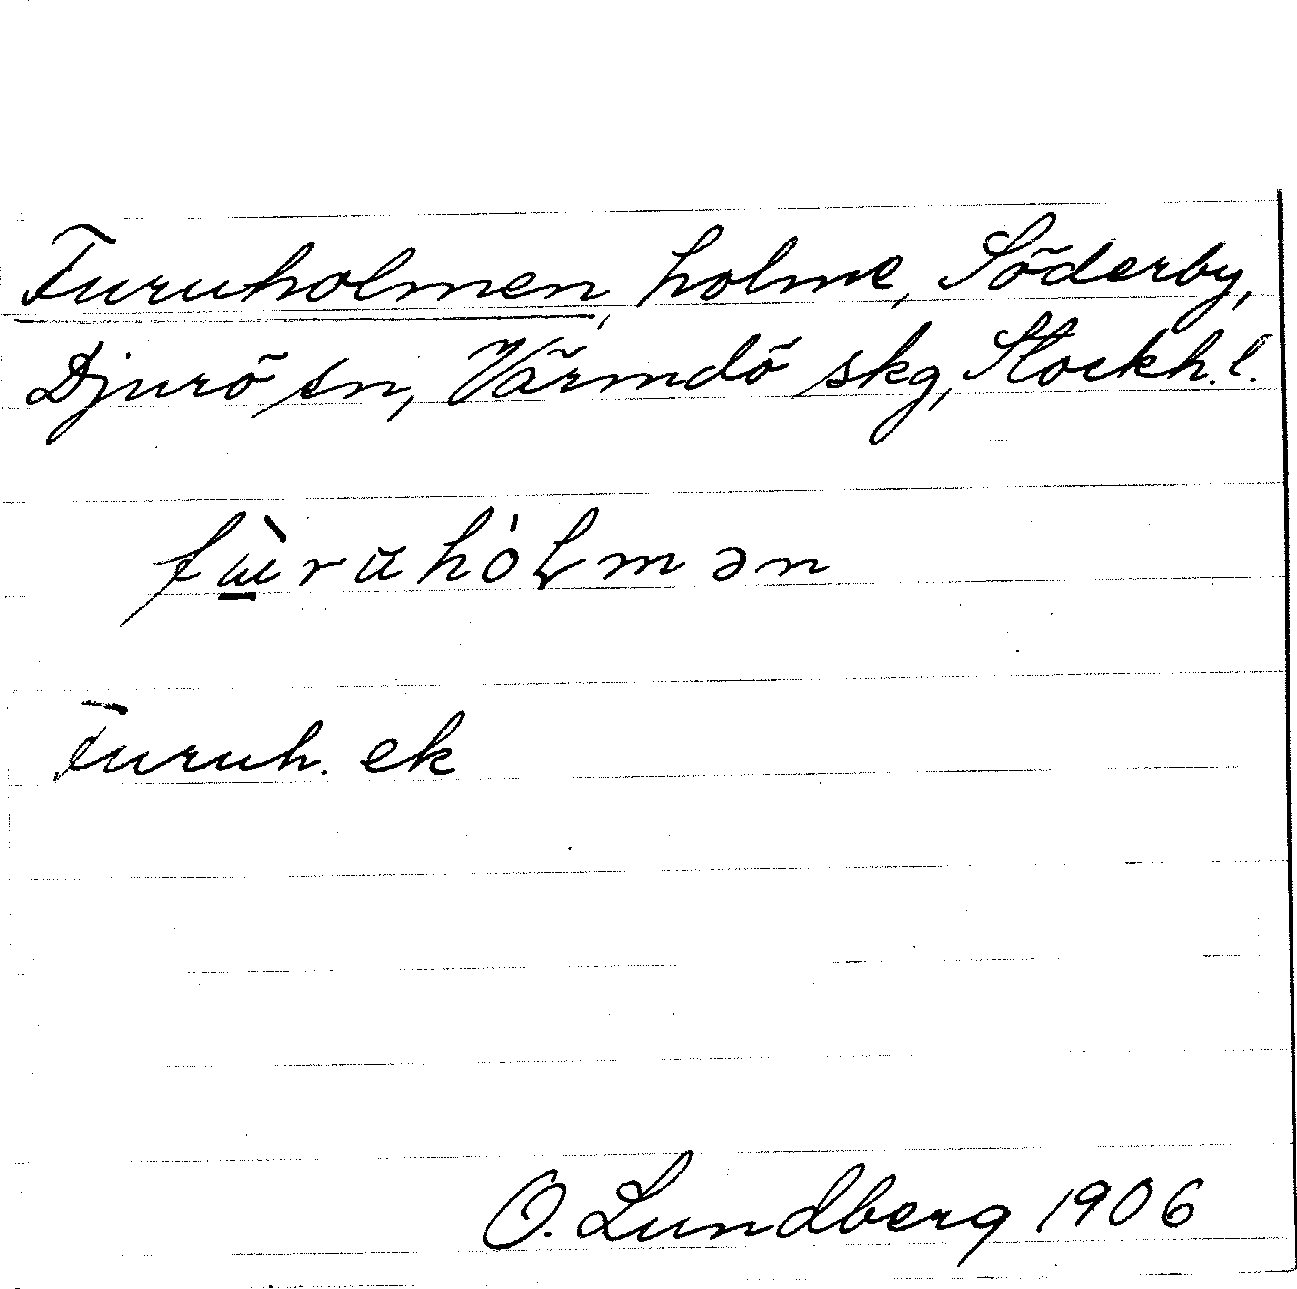 Furuholmen, holme, Söderby,
Djurö sn, Värmdö skg, Stockh. l.
Furuh. ek
O. Lundberg 1906